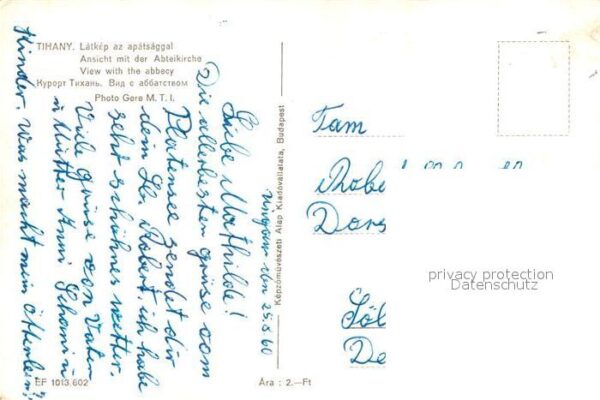 TIHANY. Látkép az apátsággal
Ansicht mit der Abteikirche
View with the abbecy
Курорт Тихань. Вид с аббатством
Photo Gere M. T. I.
Ungarn den 25.8.60
Liebe Mathilde!
Die allerbesten Grüse vom
Platensee sendet dir
dein Robert. ich habe
sehr schönes wetter.
Viele Grüse an Vater
u Mutter Anni
Kinder. Was macht mein
Képzőművészeti Alap Kiadóvállalata, Budapest
Fam
Robe
Dors
privacy protection
Datenschutz
EF 1013.602
Ára : 2.—Ft